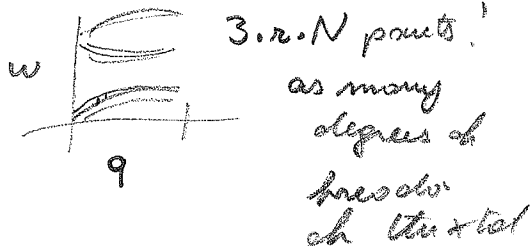 3.r.N points!
as many
ω
degrees of
q
freedom
of the xtal